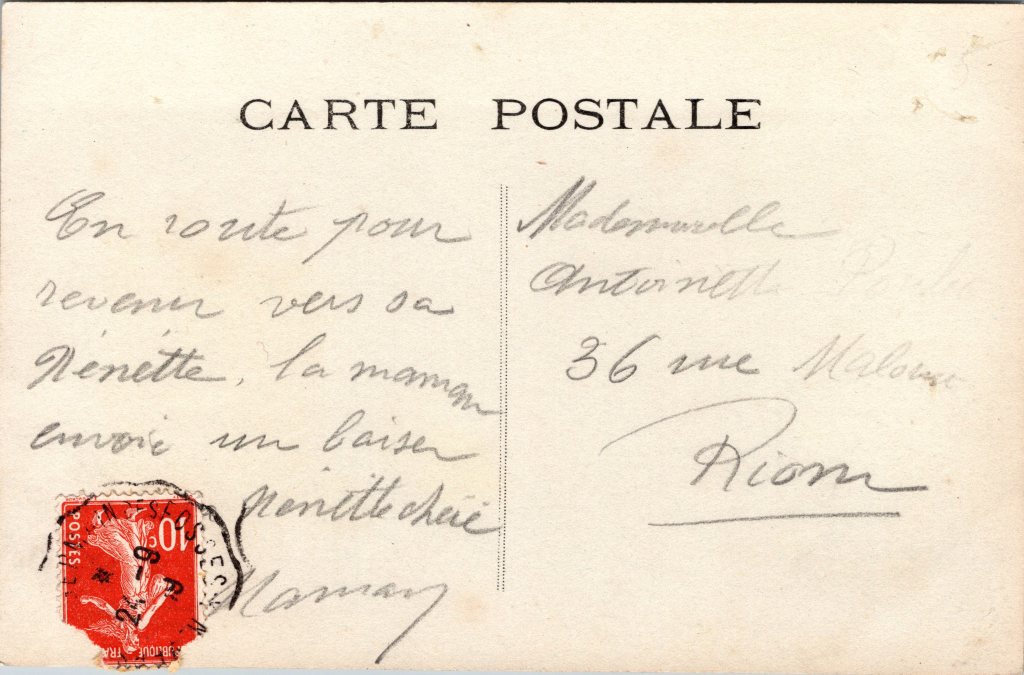 CARTE POSTALE
En route pour
revenir vers sa
Nénette, la maman
envoie un baiser
Nénette chérie
Maman
Mademoiselle
Antoinette
36 rue
Riom
POSTES
10
24 -9